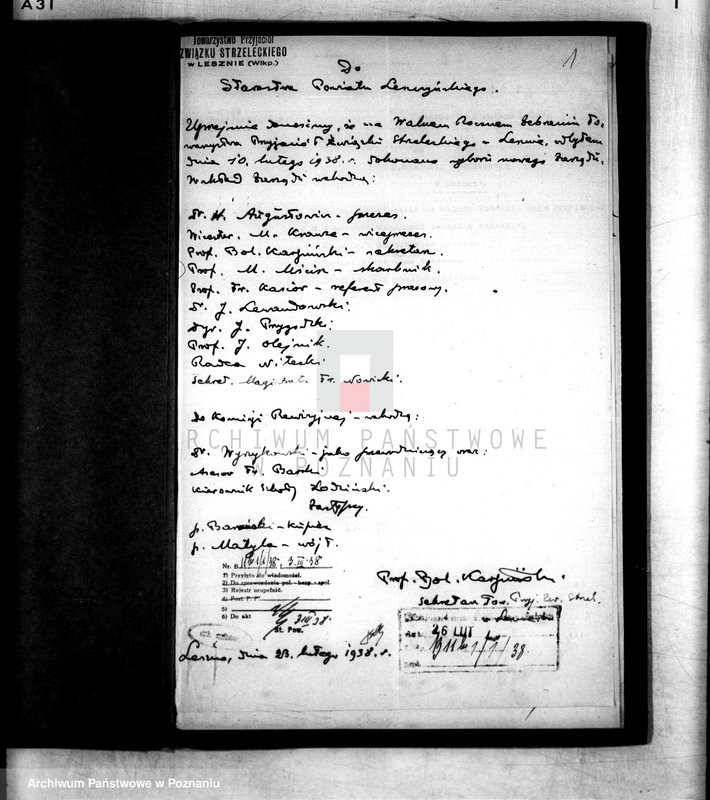 A31
1
Towarzystwo Przyjaciół
ZWIĄZKU STRZELECKIEGO
w LESZNIE (Wlkp.)
Do
Starostwa Powiatu Leszczyńskiego.
Uprzejmie donosimy, że na Walnem Rocznem Zebraniu To-
warzystwa Przyjaciół Związku Strzeleckiego w Lesznie, odbytem
dnia 10. lutego 1938. r. dokonano wyboru nowego Zarządu.
W skład Zarządu wchodzą:
Dr. H. Augustowicz - prezes.
M. Krauze - wiceprezes.
Prof. Bol. Karpiński - sekretarz.
Prof. M. - skarbnik.
Prof. Fr. Kasior - referent prasowy.
Dr. J. Lewandowski.
Dyr. J. Przygodzki.
Prof. J. Olejnik.
Radca Witecki.
Sekret. Magistratu Fr. Nowicki.
Do Komisji Rewizyjnej - wchodzą:
Dr. - jako przewodniczący oraz:
Asesor Fr. Barski
Kierownik Szkoły Łodziński.
Zastępcy.
p. Barański - kupiec
p. Matyla - wójt.
Nr. B 3.III-38
1) Przyjęto do wiadomości.
2) Do sprawdzenia pol. - bezp. - społ.
3) Rejestr uzupełnić.
4)
5)
6) Do akt
3/III 38.
St. Pow.
Prof. Bol. Karpiński.
Sekretarz Tow. Przyj. Zw. Strzel.
26 LUT
1/38
Leszno, dnia 23. lutego 1938. r.
ARCHIWUM PAŃSTWOWE
W POZNANIU
Archiwum Państwowe w Poznaniu